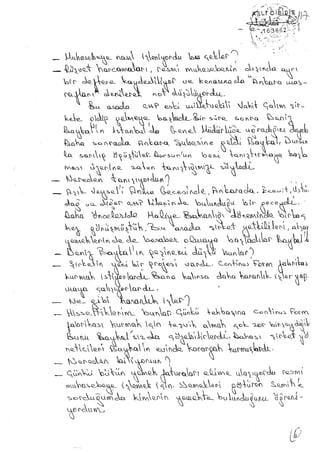 — Muhasebeye nasıl işleniyordu bu çekler?
— Rüşvet harcamaları, resmi muhasebenin dışında ayrı
bir deftere kaydediliyor ve kenarına da "Ankara mas-
rafları" denilerek not düşülüyordu.
Bu arada CHP eski milletvekili Vakit Çalım şir-
kete gidip gelmeye başladı. Bir süre sonra Deniz
Baykal'ın İstanbul'da Genel Müdürlüğe uğradığını
Daha sonrada Ankara Şubesine geldi Baykal. Dursun
la sarılıp öpüştüler. Dursun'un beni tanıştırmaya başla
ması üzerine zaten tanıştığımızı söyledi.
— Nereden tanışıyordun?
— Aşık Veysel'i Anma Gecesinde, Ankarada. Ecevit, Üstü
dağ ve diğer CHP bulunduğu bir gecede.
Daha öncelerde Maliye Bakanlığı döneminde birkaç
kez görüşmüştük. Bu arada şirket yetkilileri, akşam
yemeklerinde de beraber olmaya başladılar Baykal'la
— Deniz Baykal'ın peşine mi düştü bunlar?
— Şirketin yeni bir projesi vardı. Continus Form fabrikası
kurmak istiyorlardı. Bana kalırsa daha karanlık işler yap
maya çalışıyorlardı.
— Ne gibi karanlık işler?
— Hissettiklerim bunlar. Çünkü tekbaşına Continus Form
fabrikası kurmak için teşvik almak çok zor birşey değil
Bunu Baykal'sız da çözebilirlerdi. Bazı şirket yö
neticileri Baykal'ın evinde karargah kurmuşlardı.
— Nereden biliyorsun?
— Çünkü bütün yemek faturaları elime ulaşıyordu resmi
muhasebeye işlemek için. Yemekleri götüren Semih'e
sorduğumda kimlerin yemekte bulunduğunu öğreni-
yordum.
6